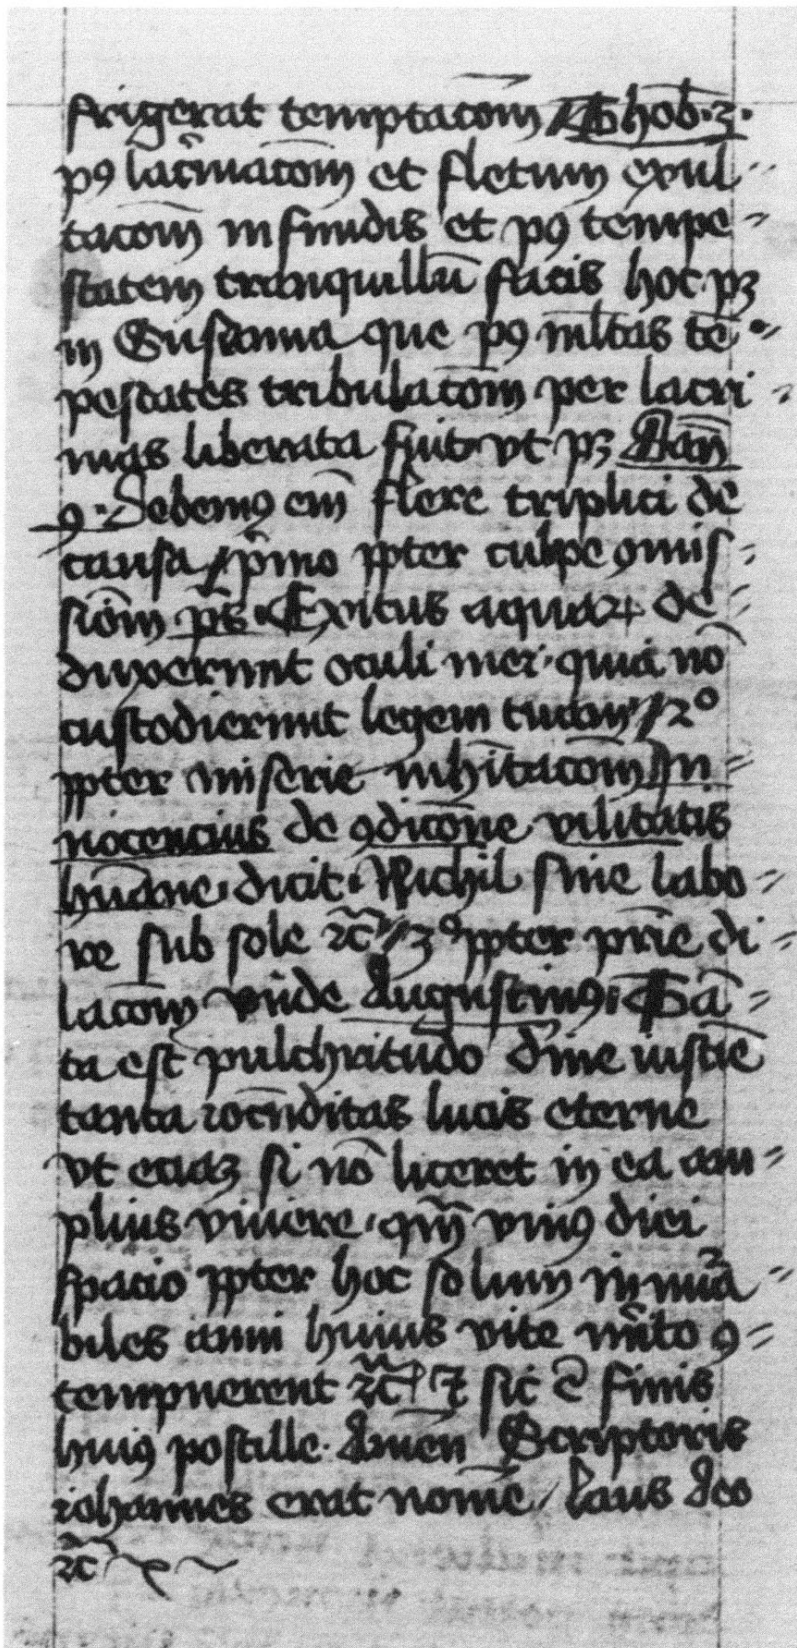 frigerat temptacōm Thob·3·
pꝰ lac̄macōm et fletum exul=
tacōm infundis et pꝰ tempe=
statem tranquillū facis hoc pꝫ
in Susanna que pꝰ ml̄tas tē=
pestates tribulacōm per lacri=
mas liberata fuit vt pꝫ Dan̄
9· Debemꝰ em̄ flere triplici de
causa p̄mo ꝓpter culpe ꝯmis=
siōm p̄s Exitus aquaꝝ de=
duxerunt oculi mei· quia nō
custodierunt legem tuam 2º
ꝓpter miserie inhītacōm In=
nocencius de ꝯdicōne vilitatis
hūane dicit· Nichil sine labo=
re sub sole ⁊c̄ 3º ꝓpter pr̄ie di=
lacōm vn̄de Augustinꝰ· Tā=
ta est pulchritudo dīne iusticīe
tanta iocūditas lucis eterne
vt eciaꝫ si nō liceret in ea am=
plius viuere· qm̄ vniꝰ diei
spacio ꝓpter hoc solum in mīa=
biles anni huius vite m̄ito ꝯ=
tempnerent ⁊c̄ Et sic ē finis
huiꝰ postille· Amen Scriptoris
iohannes erat nomē / Laus deo
⁊c̄